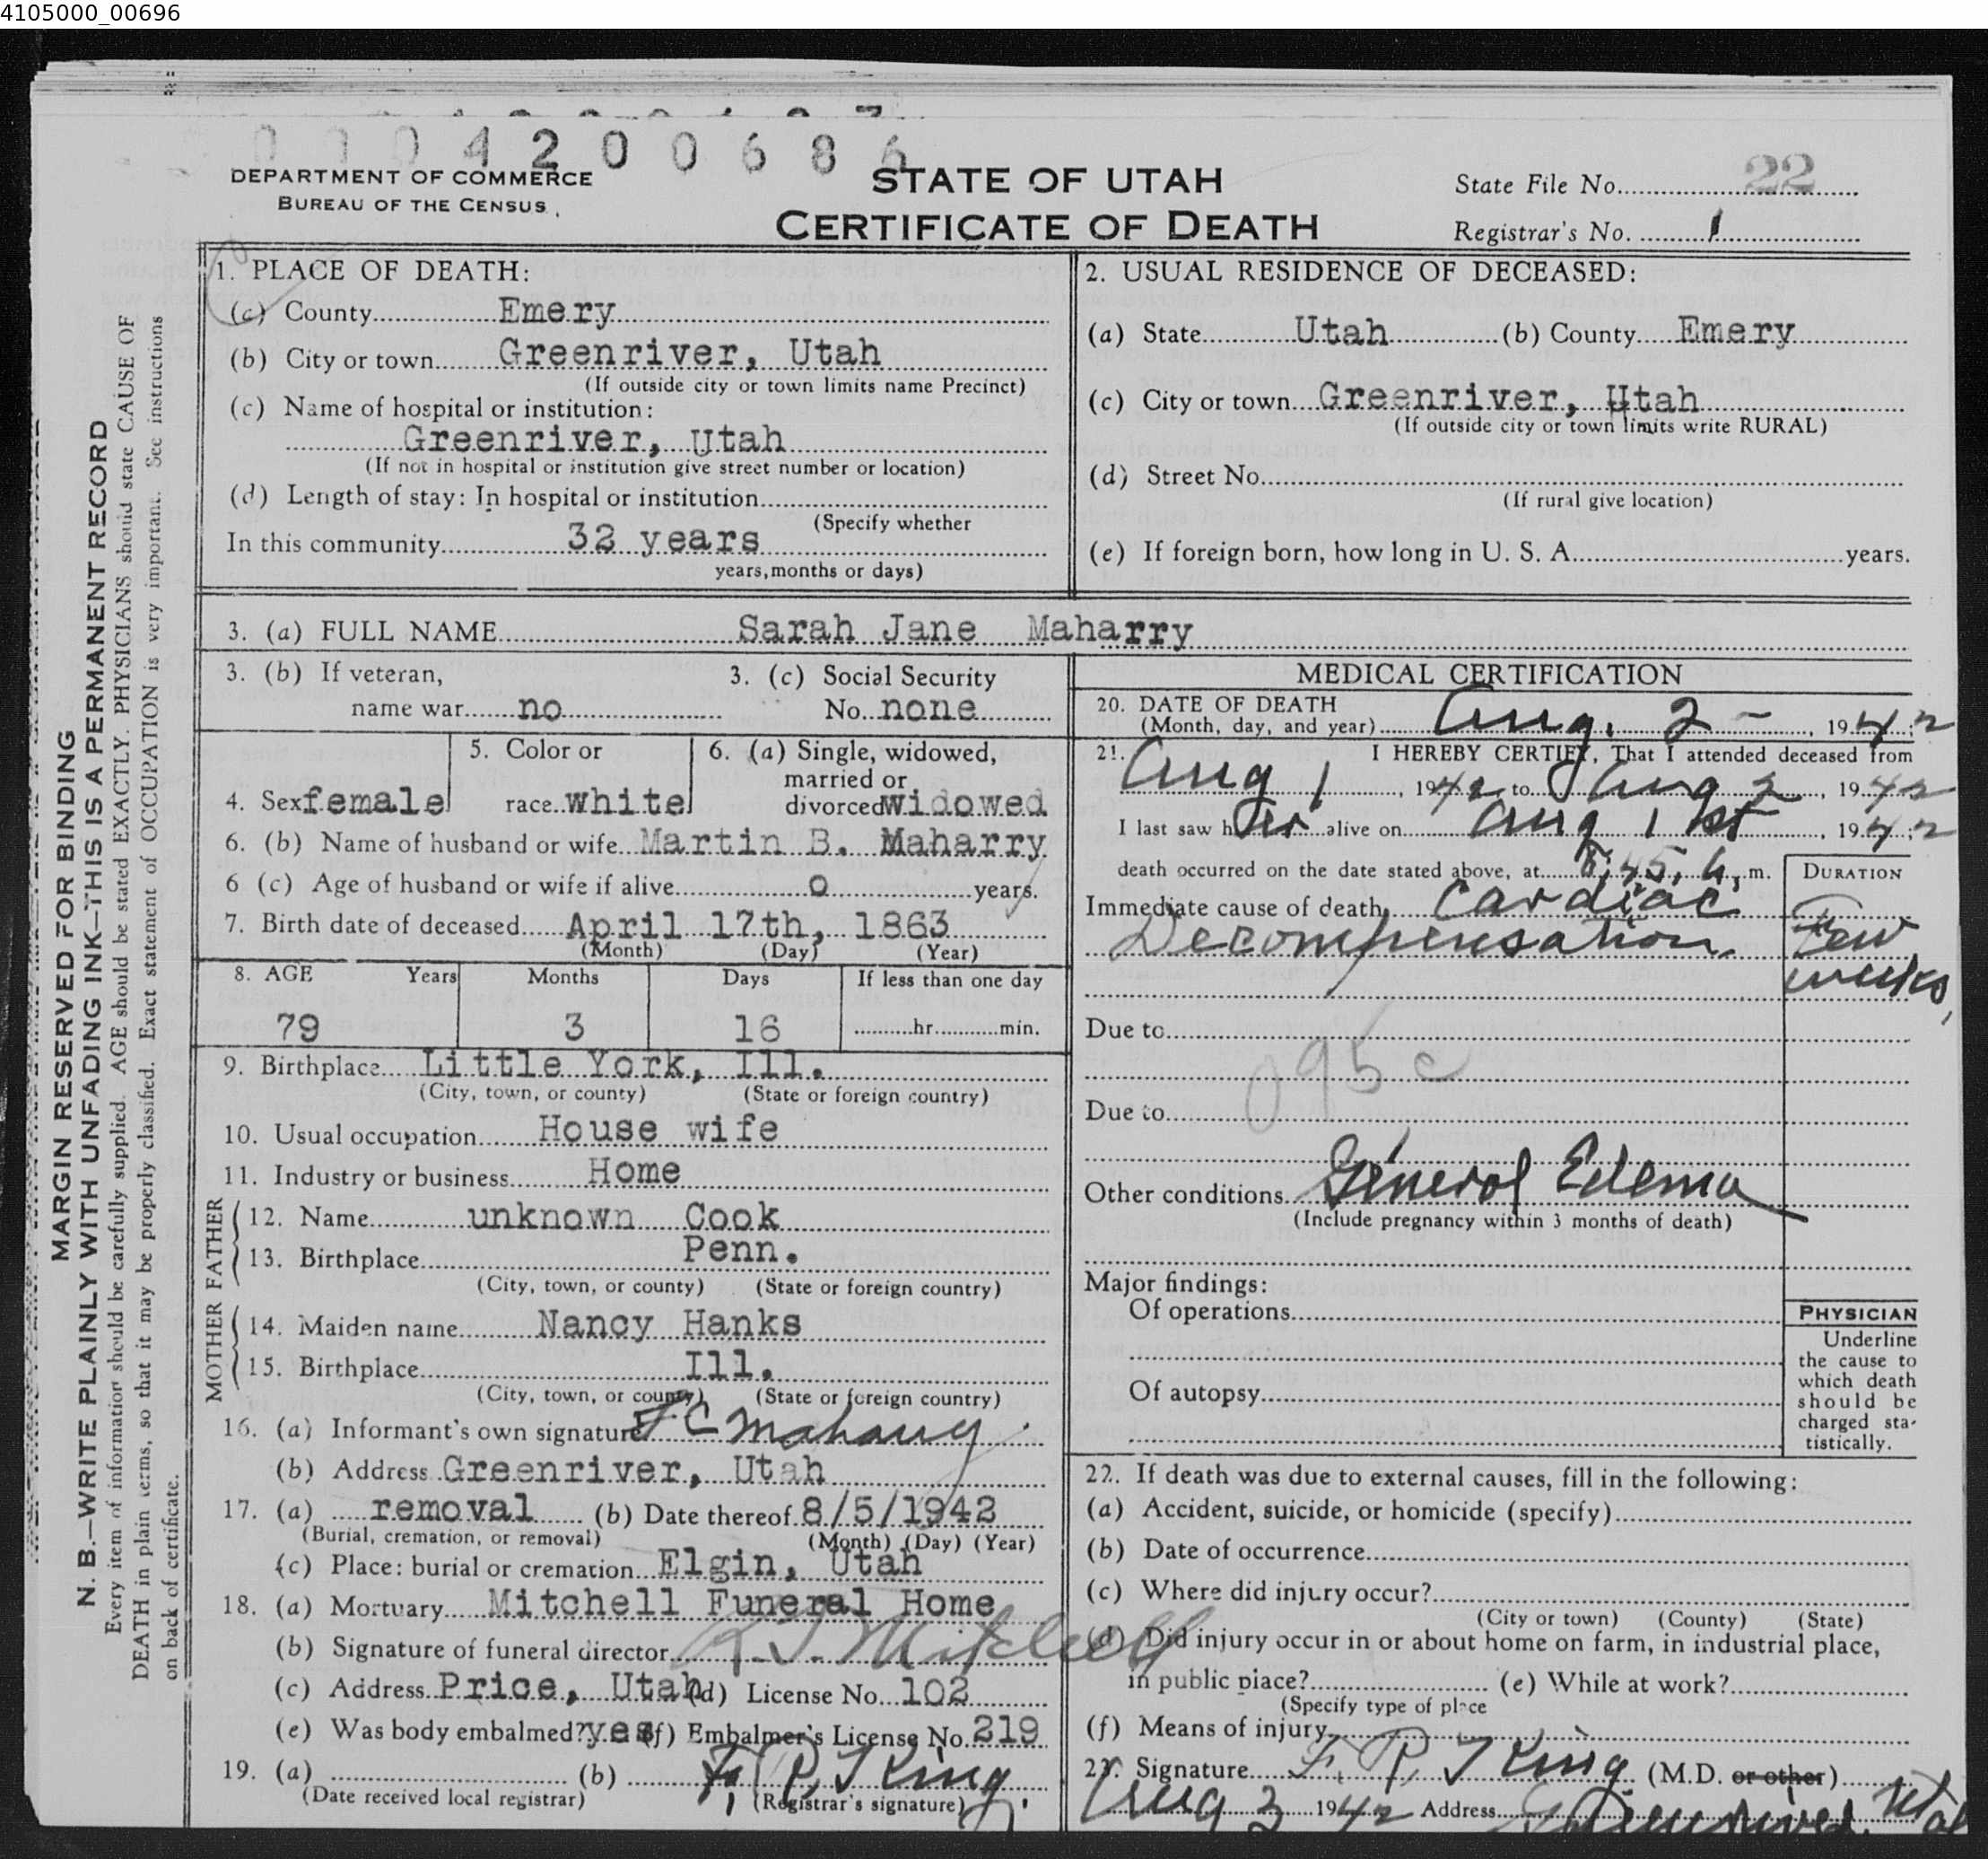 4105000_00696
0 1 0 4 2 0 0 6 8 6
DEPARTMENT OF COMMERCE
BUREAU OF THE CENSUS
STATE OF UTAH
CERTIFICATE OF DEATH
State File No. 22
Registrar's No. 1
MARGIN RESERVED FOR BINDING
N. B.—WRITE PLAINLY WITH UNFADING INK—THIS IS A PERMANENT RECORD
Every item of information should be carefully supplied. AGE should be stated EXACTLY. PHYSICIANS should state CAUSE OF
DEATH in plain terms, so that it may be properly classified. Exact statement of OCCUPATION is very important. See instructions
on back of certificate.
1. PLACE OF DEATH:
(a) County Emery
(b) City or town Greenriver, Utah
(If outside city or town limits name Precinct)
(c) Name of hospital or institution:
Greenriver, Utah
(If not in hospital or institution give street number or location)
(d) Length of stay: In hospital or institution
(Specify whether
In this community 32 years
years, months or days)
2. USUAL RESIDENCE OF DECEASED:
(a) State Utah (b) County Emery
(c) City or town Greenriver, Utah
(If outside city or town limits write RURAL)
(d) Street No.
(If rural give location)
(e) If foreign born, how long in U. S. A. years.
3. (a) FULL NAME Sarah Jane Maharry
3. (b) If veteran,
name war no
3. (c) Social Security
No. none
4. Sex female
5. Color or
race white
6. (a) Single, widowed,
married or
divorced widowed
6. (b) Name of husband or wife Martin B. Maharry
6 (c) Age of husband or wife if alive 0 years.
7. Birth date of deceased April 17th, 1863
(Month) (Day) (Year)
8. AGE Years Months Days If less than one day
79 3 16 hr. min.
9. Birthplace Little York, Ill.
(City, town, or county) (State or foreign country)
10. Usual occupation House wife
11. Industry or business Home
FATHER
12. Name unknown Cook
13. Birthplace Penn.
(City, town, or county) (State or foreign country)
MOTHER
14. Maiden name Nancy Hanks
15. Birthplace Ill.
(City, town, or county) (State or foreign country)
16. (a) Informant's own signature F C Maharry
(b) Address Greenriver, Utah
17. (a) removal (b) Date thereof 8/5/1942
(Burial, cremation, or removal) (Month) (Day) (Year)
(c) Place: burial or cremation Elgin, Utah
18. (a) Mortuary Mitchell Funeral Home
(b) Signature of funeral director Mitchell
(c) Address Price, Utah (d) License No. 102
(e) Was body embalmed? yes (f) Embalmer's License No. 219
19. (a) (b) F. R. J King
(Date received local registrar) (Registrar's signature)
MEDICAL CERTIFICATION
20. DATE OF DEATH
(Month, day, and year) Aug. 2 - , 1942
21. I HEREBY CERTIFY, That I attended deceased from
Aug 1 , 1942 to Aug 2 , 1942
I last saw her alive on Aug 1st , 1942;
death occurred on the date stated above, at 8:45, A, m.
DURATION
Immediate cause of death Cardiac
Decompensation
Few
weeks,
Due to
095c
Due to
Other conditions General Edema
(Include pregnancy within 3 months of death)
Major findings:
Of operations
Of autopsy
PHYSICIAN
Underline
the cause to
which death
should be
charged sta-
tistically.
22. If death was due to external causes, fill in the following:
(a) Accident, suicide, or homicide (specify)
(b) Date of occurrence
(c) Where did injury occur?
(City or town) (County) (State)
(d) Did injury occur in or about home on farm, in industrial place,
in public place? (e) While at work?
(Specify type of place
(f) Means of injury
23. Signature F. R. J King (M.D. or other)
Aug 3 1942 Address Greenriver, Utah